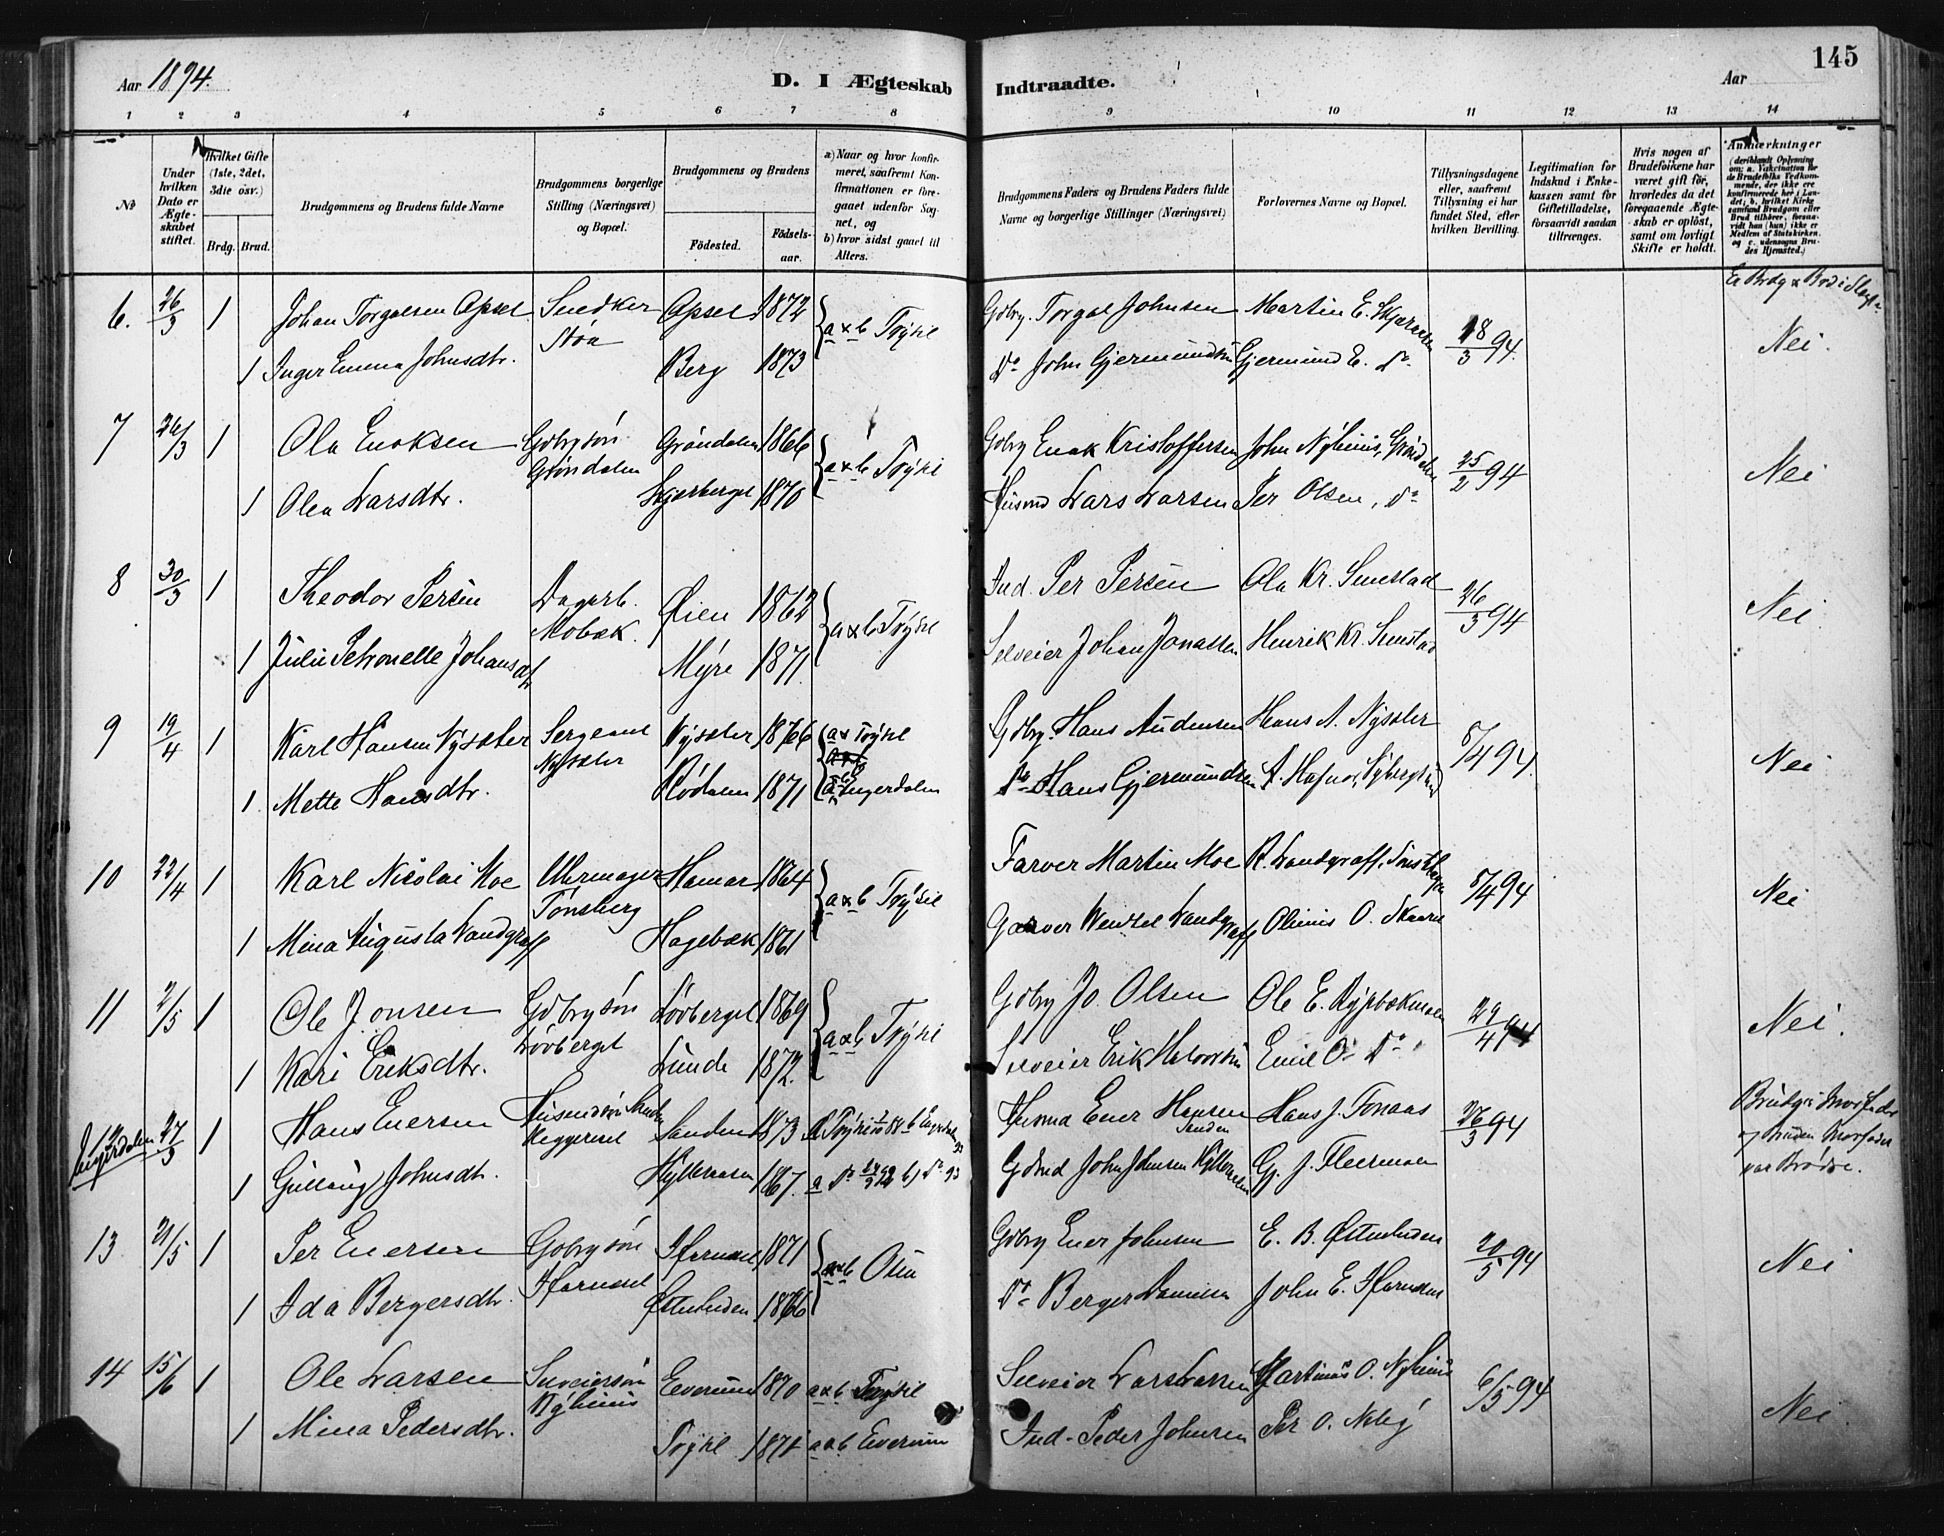 Aar 1894.
D. I Ægteskab Indtraadte.
Aar
145
1 2 3 4 5 6 7 8 9 10 11 12 13 14
No
Under hvilken Dato er Ægteskabet stiftet.
Hvilket Gifte (1ste, 2det, 3die osv.)
Brdg. Brud.
Brudgommens og Brudens fulde Navne
Brudgommens borgerlige Stilling (Næringsvei) og Bopæl.
Brudgommens og Brudens
Födested.
Födsels-aar.
a) Naar og hvor konfirmeret, saafremt Konfirmationen er foregaaet udenfor Sognet, og
b) hvor sidst gaaet til Alters.
Brudgommens Faders og Brudens Faders fulde Navne og borgerlige Stillinger (Næringsvei)
Forlovernes Navne og Bopæl.
Tillysningsdagene eller, saafremt Tillysning ei har fundet Sted, efter hvilken Bevilling.
Legitimation for Indskud i Enkekassen samt for Giftetilladelse, forsaavidt saadan tiltrænges.
Hvis nogen af Brudefolkene har været gift för, hvorledes da det foregaaende Ægteskab er oplöst, samt om lovligt Skifte er holdt.
Anmærkninger
(deriblandt Oplysning om: a. Vakcination for de Brudefolks Vedkommende, der ikke ere konfirmerede her i Landet, b. hvilket Kirkesamfund Brudgom eller Brud tilhörer, forsaavidt han (hun) ikke er Medlem af Statskirken, og c. udensogns Brudes Hjemsted.)
6. 26/3 1 Johan Torgalsen Opsel Snedker Opsel 1872 a & b Trysil Gdbr. Torgal Johnsen Martin E. 18/3 94. Nei.
Støa
1 Inger Emma Johnsdtr. Berg 1873 Do John Gjermundsen Gjermund E. Do
7 26/3 1 Ola Enoksen Gdbrsøn Grøndalen 1866 a & b Trysil Gdbr Enok Kristoffersen John Nyhuus, Grøndalen 25/2 94 Nei
Grøndalen
1 Olea Larsdtr. 1870 Husmd Lars Larsen Per Olsen, Do
8 30/3 1 Theodor Persen Dagarb. Øien 1862 a & b Trysil Ind. Per Persen Ola Kr. Senstad 26/3 94 Nei
Mobæk.
1 Julie Petronelle Johansdtr Myre 1871. Selveier Johan Jonassen Henrik Kr. Senstad
9 19/4 1 Karl Hansen Nysæter Sergeant Nysæter 1866 a & Trysil Gdbr. Hans Audensen Hans A. Nysæter 8/4 94. Nei
Nysæter
1. Mette Hansdtr. Rødalen 1871 Engerdalen Do Hans Gjermundsen
10 22/4 1 Karl Nicolai Moe Uhrmager Hamar 1864 a & b Trysil Farver Martin Moe R. Landgraff, 8/4 94 Nei
Tønsberg
1 Mina Augusta Landgraff Hagebæk 1861 Garver Wentzel Landgraff Olinius O. Skaaret
11 2/5 1 Ole Jonsen Gdbrsøn Løvberget 1869 a & b Trysil Gdbr Jo. Olsen Ole E. 29/4 94 Nei.
Løvberget
1 Kari Eriksdtr. Lunde 1872. Selveier Erik Halvorsen Emil O. Do
12 Engerdalen 27/3 1 Hans Enersen Sanden 1873 Husmd Ener Hansen Sanden Hans J. Tonaas 26/3 94
1 Gulaug Johnsdtr. Hylleraasen 1867. Gdmd John Johnsen Hylleraasen Gj. J. Fleermoen
var Brødre.
13 21/5 1 Per Enersen Gdbrsøn 1871 a & b Osen Gdbr Ener Johnsen E. B. Østenheden 20/5 94 Nei
1 Ida Bergersdtr. Østenheden 1866 Do Berger Danielsen John E.
14 15/6 1 Ole Larsen Selveiersøn Elverum 1870 a & b Trysil Selveier Lars Larsen Martinus O. Nyhuus 6/5 94 Nei.
Nyhuus
1 Mina Pedersdtr. Trysil 1871 a & b Elverum Ind. Peder Johnsen Per O. Neby